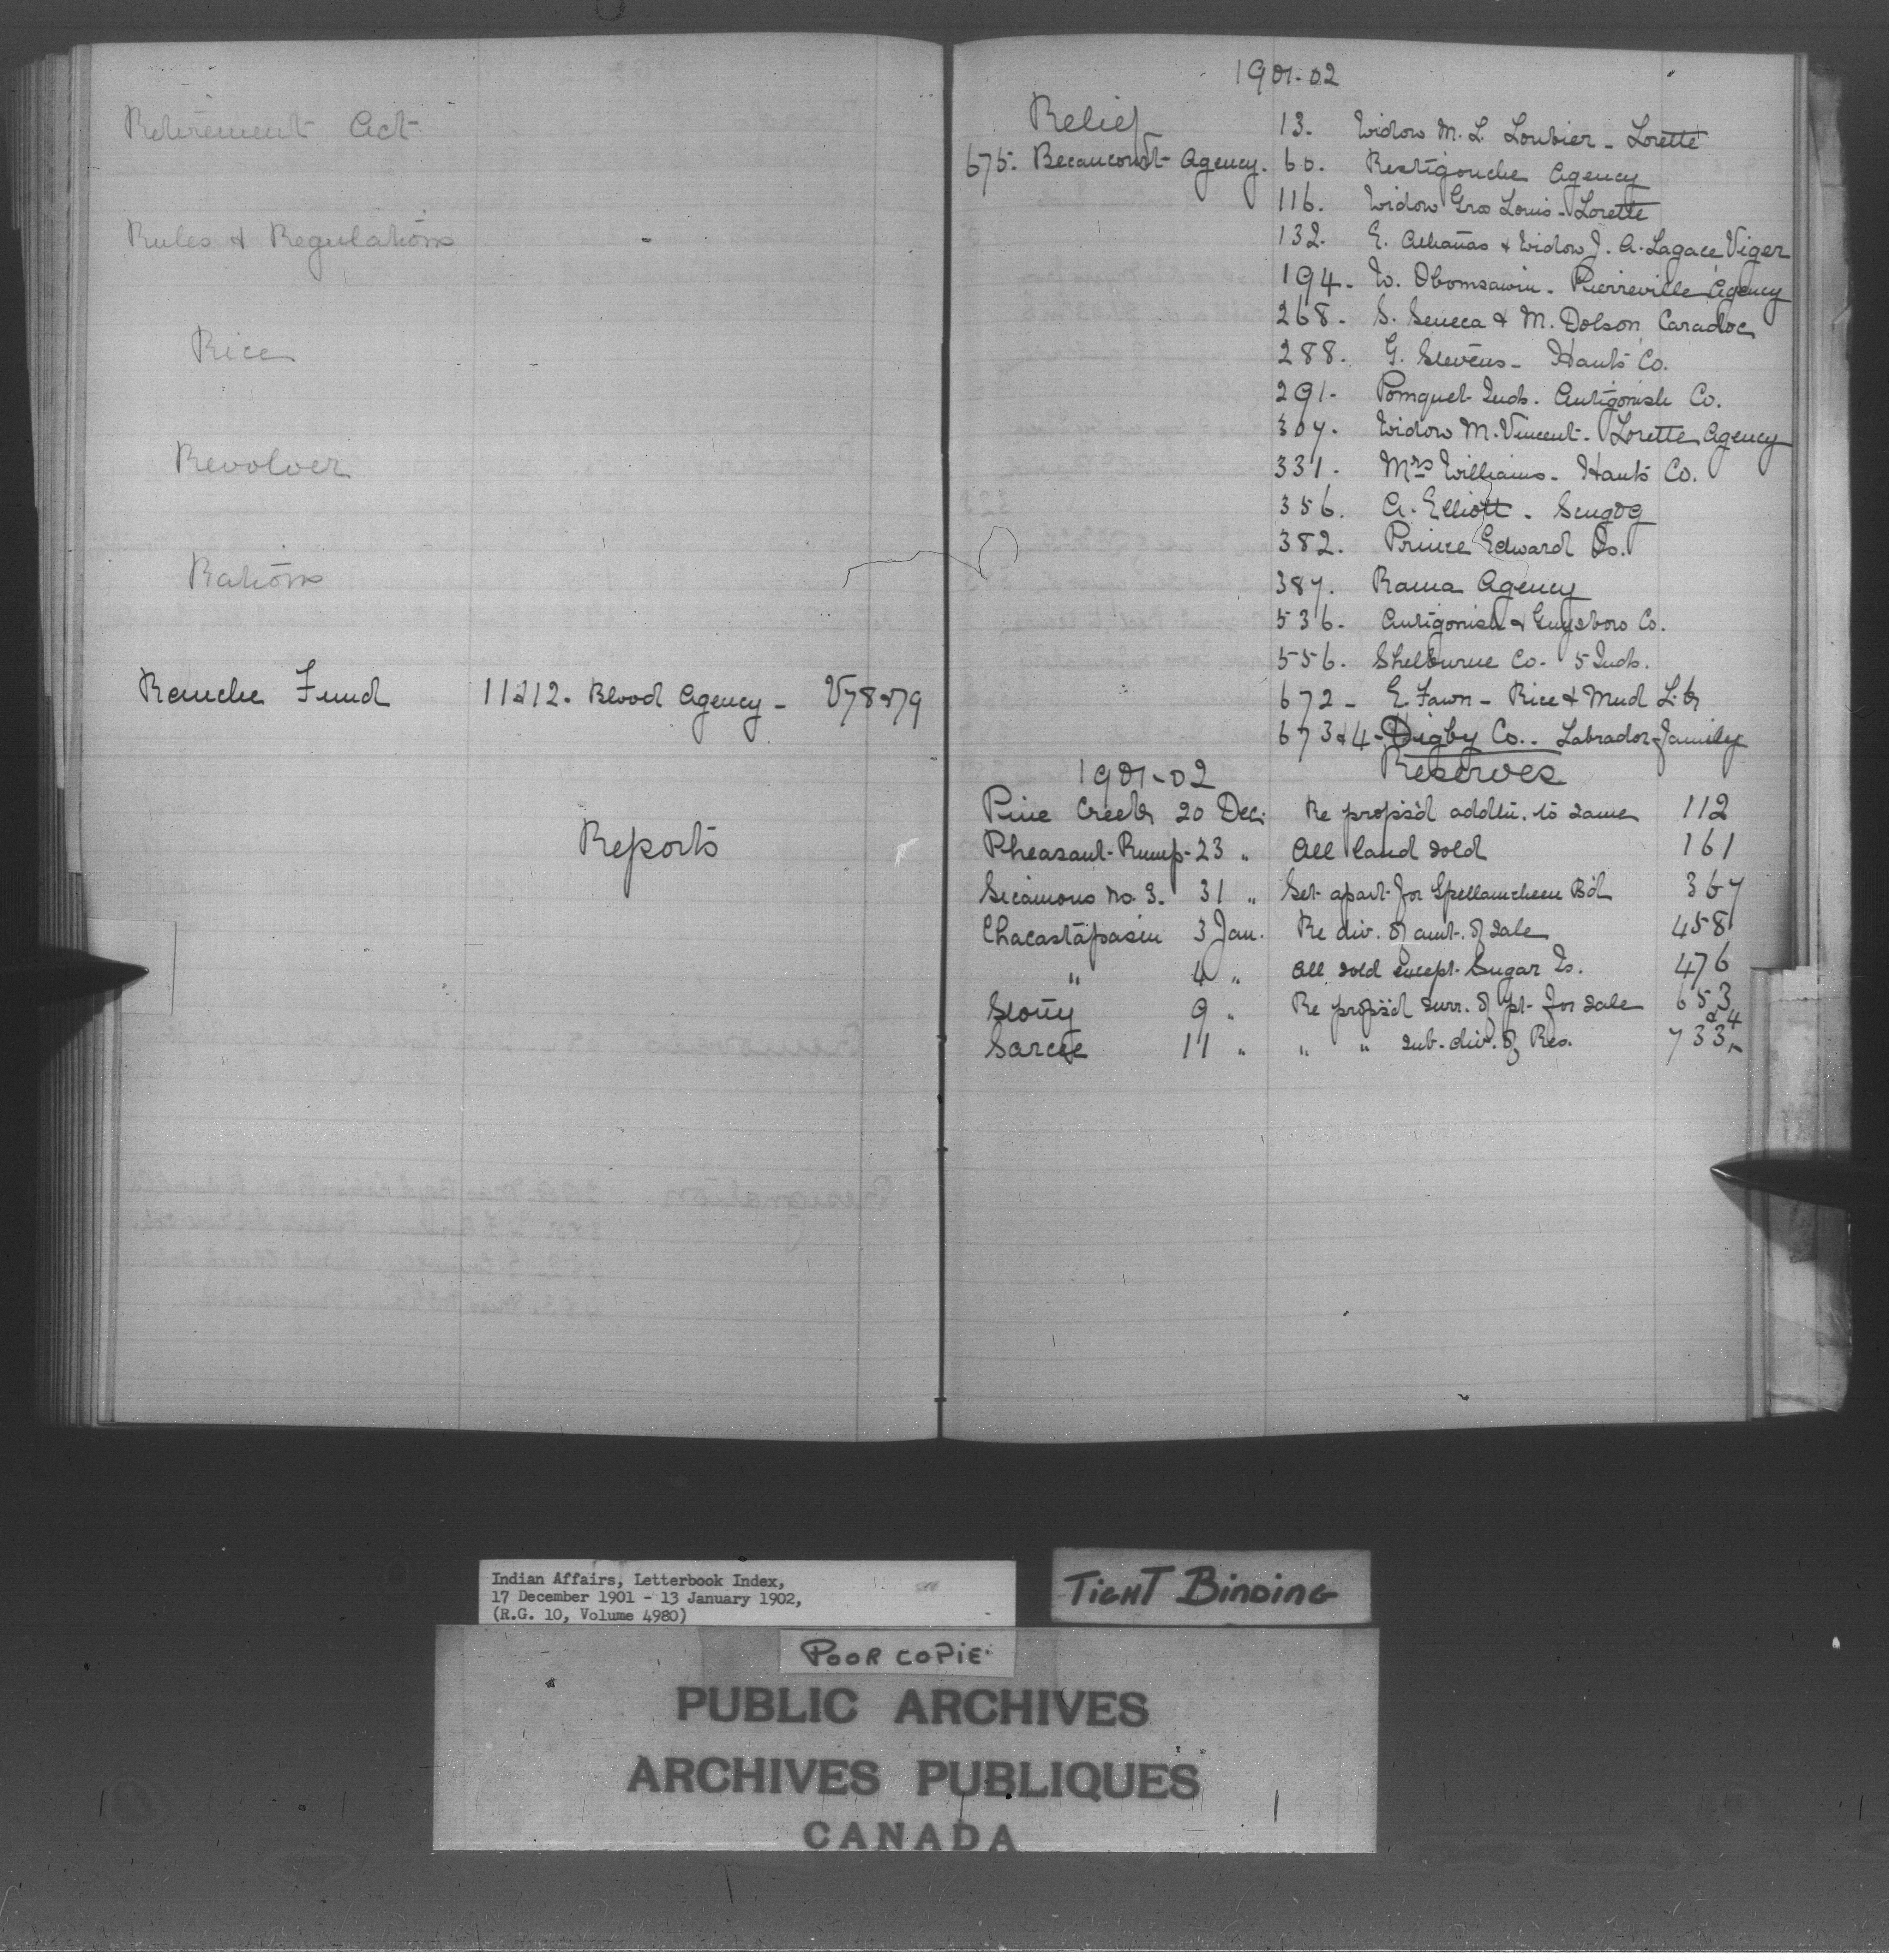 Retirement Act
Rules & Regulations
Rice
Revolver
Rations
Ranche Fund 11&12. Blood Agency - V78&79
Reports
1901-02
Relief
13. Widow M. L. Loubier - Lorette
675. Becancourt Agency. 60. Restigouche Agency
116. Widow Gros Louis - Lorette
132. E. & Widow J. A. Lagace Viger
194. W. Obomsawin - Pierreville Agency
268. S. Seneca & M. Dolson Caradoc
288. G. Stevens - Hants Co.
291. Pomquet Inds. Antigonish Co.
307. Widow M. Vincent - Lorette Agency
331. Mrs Williams - Hants Co.
356. A. Elliott - Scugog
382. Prince Edward Is.
387. Rama Agency
536. Antigonish & Guysboro Co.
556. Shelburne Co. 5 Inds.
672 - E. Fawn - Rice & Mud L.
673&4 - Digby Co. - Labrador family
1901-02 Reserves
Pine Creek 20 Dec. Re propos'd addtn. to same 112
Pheasant Rump - 23 " All land sold 161
Sicamous No. 3. 31 " Set apart for Spellamcheen B'd 367
Chacastapasin 3 Jan. Re div. of amt. of sale 458
" 4 " All sold except Sugar Is. 476
Stony 9 " Re propos'd surr. of pt. for sale 653
Sarcee 11 " " " sub-div. of Res. 733 & 4
Indian Affairs, Letterbook Index,
17 December 1901 - 13 January 1902,
(R.G. 10, Volume 4980)
TIGHT BINDING
POOR COPIE
PUBLIC ARCHIVES
ARCHIVES PUBLIQUES
CANADA